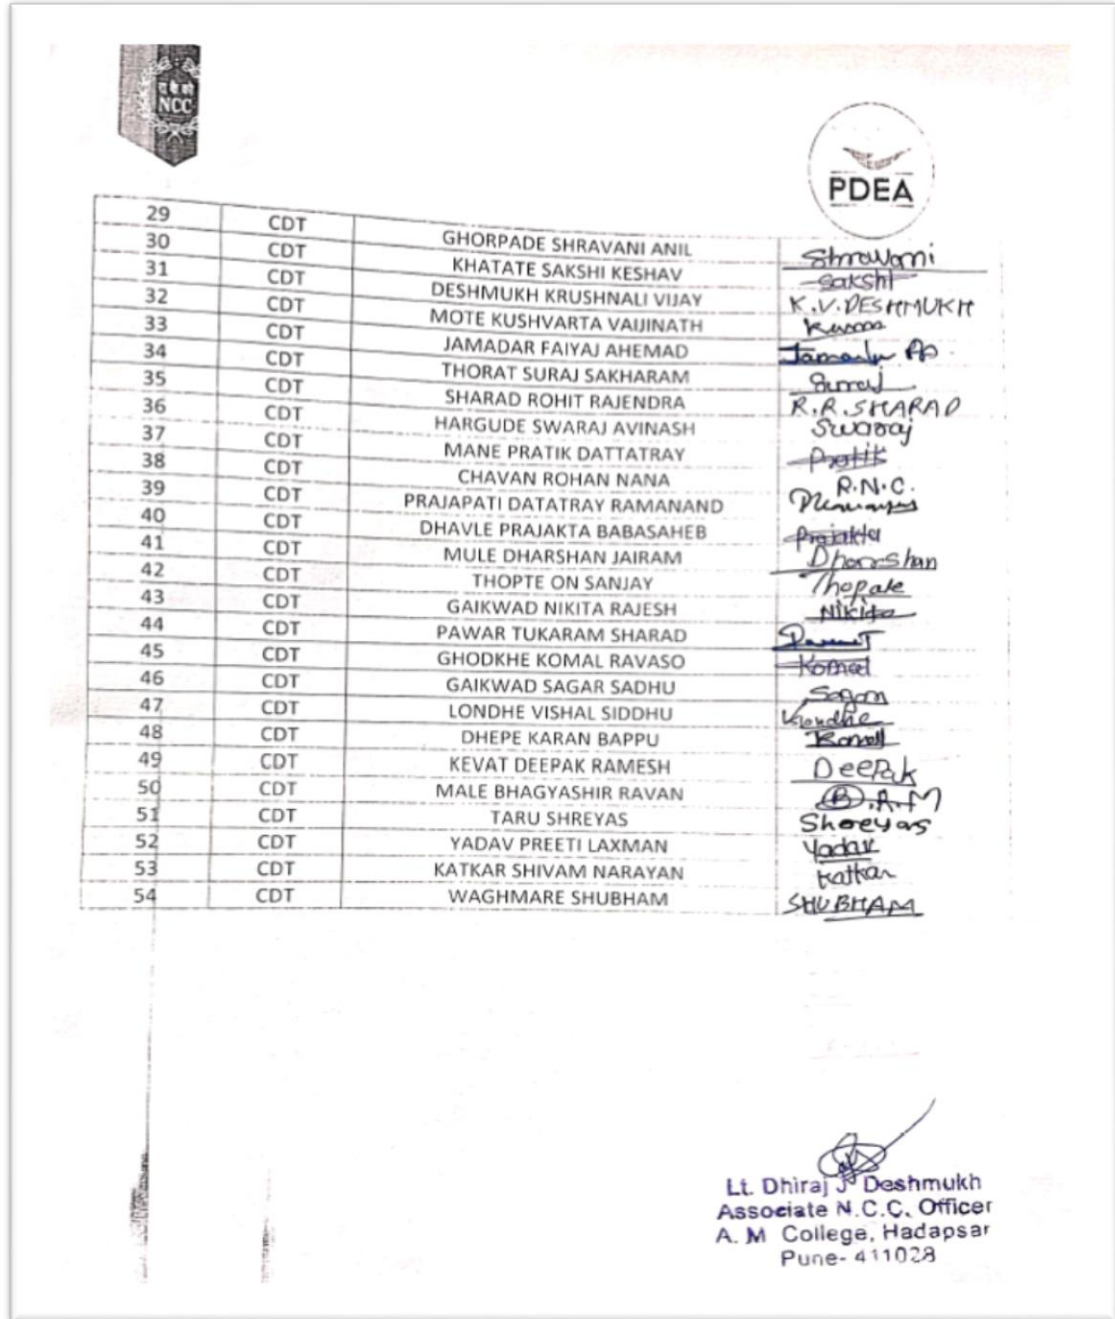 रा कै को
NCC
PDEA
29 CDT GHORPADE SHRAVANI ANIL Shravani
30 CDT KHATATE SAKSHI KESHAV Sakshi
31 CDT DESHMUKH KRUSHNALI VIJAY K.V.DESHMUKH
32 CDT MOTE KUSHVARTA VAIJINATH
33 CDT JAMADAR FAIYAJ AHEMAD
34 CDT THORAT SURAJ SAKHARAM Suraj
35 CDT SHARAD ROHIT RAJENDRA R.R.SHARAD
36 CDT HARGUDE SWARAJ AVINASH Swaraj
37 CDT MANE PRATIK DATTATRAY Pratik
38 CDT CHAVAN ROHAN NANA R.N.C.
39 CDT PRAJAPATI DATATRAY RAMANAND
40 CDT DHAVLE PRAJAKTA BABASAHEB Prajakta
41 CDT MULE DHARSHAN JAIRAM Dharshan
42 CDT THOPTE ON SANJAY Thopate
43 CDT GAIKWAD NIKITA RAJESH Nikita
44 CDT PAWAR TUKARAM SHARAD
45 CDT GHODKHE KOMAL RAVASO Komal
46 CDT GAIKWAD SAGAR SADHU Sagar
47 CDT LONDHE VISHAL SIDDHU
48 CDT DHEPE KARAN BAPPU
49 CDT KEVAT DEEPAK RAMESH Deepak
50 CDT MALE BHAGYASHIR RAVAN B.R.M
51 CDT TARU SHREYAS Shreyas
52 CDT YADAV PREETI LAXMAN Yadav
53 CDT KATKAR SHIVAM NARAYAN Katkar
54 CDT WAGHMARE SHUBHAM SHUBHAM
Lt. Dhiraj J Deshmukh
Associate N.C.C. Officer
A. M College, Hadapsar
Pune- 411028